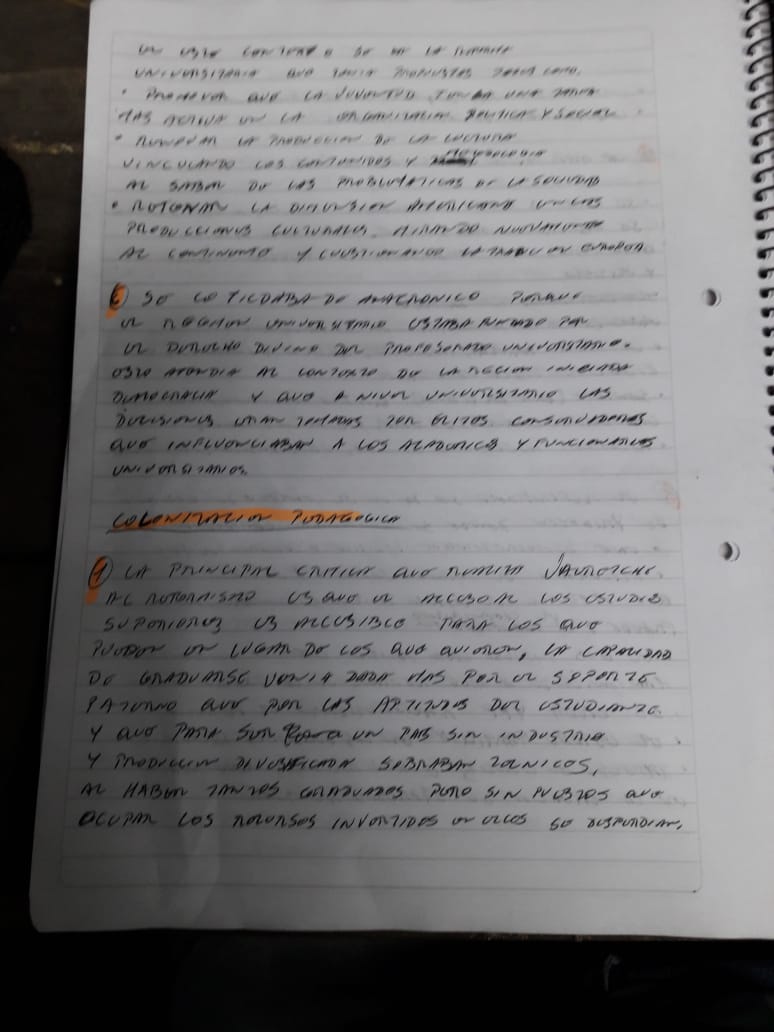 EN ESTE CONTEXTO SE DA LA REFORMA
UNIVERSITARIA QUE TENIA PROPUESTAS TALES COMO.
• PROMOVER QUE LA JUVENTUD TENGA UNA TAREA
MAS ACTIVA EN LA ORGANIZACION POLITICA Y SOCIAL
• RENOVAR LA PRODUCCION DE LA CULTURA
VINCULANDO LOS CONTENIDOS Y METODOLOGIA
AL SABER DE LAS PROBLEMATICAS DE LA SOCIEDAD
• RETOMAR LA DIMENSION AMERICANA EN LAS
PRODUCCIONES CULTURALES, MIRANDO NUEVAMENTE
AL CONTINENTE Y CUESTIONANDO LA TRADICION EUROPEA
SE LO TILDABA DE ANACRONICO PORQUE
EL REGIMEN UNIVERSITARIO ESTABA FUNDADO POR
EL DERECHO DIVINO DEL PROFESORADO UNIVERSITARIO.
ESTO ATENDIA AL CONTEXTO DE LA RECIEN INICIADA
DEMOCRACIA Y QUE A NIVEL UNIVERSITARIO LAS
DECISIONES ERAN TOMADAS POR ELITES CONSERVADORAS
QUE INFLUENCIABAN A LOS ACADEMICOS Y FUNCIONARIOS
UNIVERSITARIOS.
COLONIZACION PEDAGOGICA
1 LA PRINCIPAL CRITICA QUE REALIZA JAURETCHE
AL REFORMISMO ES QUE EL ACCESO AL LOS ESTUDIOS
SUPERIORES ES ACCESIBLE PARA LOS QUE
PUEDEN EN LUGAR DE LOS QUE QUIEREN, LA CAPACIDAD
DE GRADUARSE VENIA DADA MAS POR EL SOPORTE
PATERNO QUE POR LAS APTITUDES DEL ESTUDIANTE
Y QUE PARA SER UN PAIS SIN INDUSTRIA
Y PRODUCCION DIVERSIFICADA SOBRABAN TECNICOS,
AL HABER TANTOS GRADUADOS PERO SIN PUESTOS QUE
OCUPAR LOS RECURSOS INVERTIDOS EN ELLOS SE DESPERDICIAN.